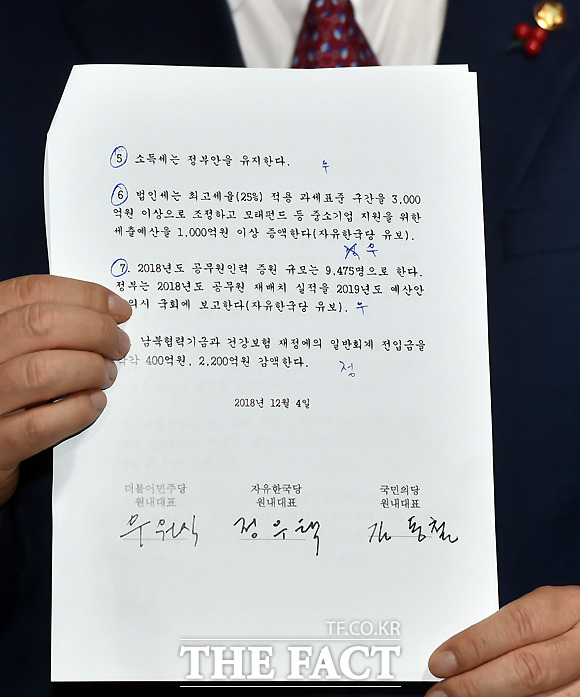 5 소득세는 정부안을 유지한다. 우
6 법인세는 최고세율(25%) 적용 과세표준 구간을 3,000
억원 이상으로 조정하고 모태펀드 등 중소기업 지원을 위한
세출예산을 1,000억원 이상 증액한다(자유한국당 유보).
우
7. 2018년도 공무원인력 증원 규모는 9,475명으로 한다.
정부는 2018년도 공무원 재배치 실적을 2019년도 예산안
의시 국회에 보고한다(자유한국당 유보). 우
남북협력기금과 건강보험 재정에의 일반회계 전입금을
각 400억원, 2,200억원 감액한다. 정
2018년 12월 4일
더불어민주당 자유한국당 국민의당
원내대표 원내대표 원내대표
우원식 정우택 김동철
TF.CO.KR
THE FACT